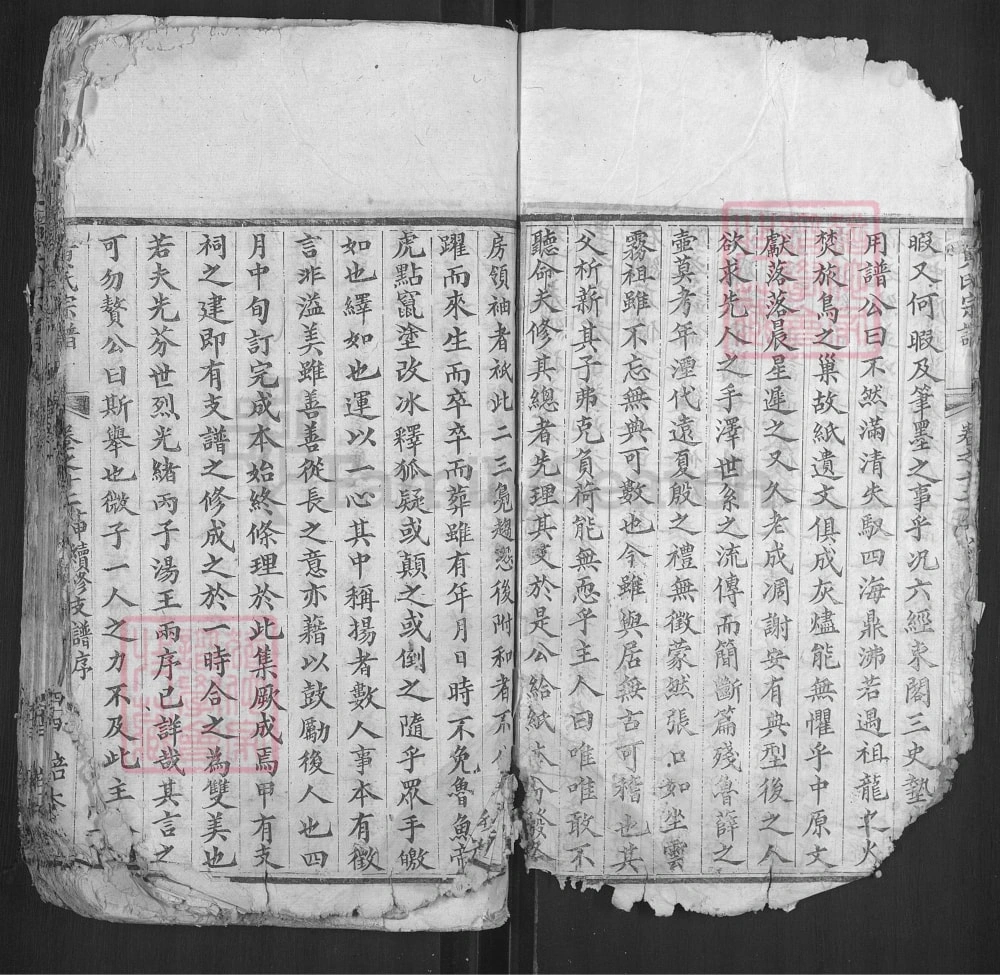 暇又何暇及筆墨之事乎况六經束閣三史墊
用譜公曰不然滿清失馭四海鼎沸若遇祖龍之火
焚旅鳥之巢故紙遺文俱成灰燼能無懼乎中原文
獻落落晨星遲之又久老成凋謝安有典型後之人
欲求先人之手澤世系之流傳而簡斷篇殘魯薛之
壼莫考年湮代遠夏殷之禮無徵蒙然張口如坐雲
霧祖雖不忘無典可數也今雖與居無古可稽也其
父析薪其子弗克負荷能無恧乎主人曰唯唯敢不
聽命夫修其總者先理其支於是公給紙本分發各
房領袖者祇此二三鳧趨恐後附和者不
躍而來生而卒卒而葬雖有年月日時不免魯魚帝
虎點竄塗改冰釋狐疑或顛之或倒之隨乎眾手皦
如也繹如也運以一心其中稱揚者數人事本有徵
言非溢美雖善善從長之意亦藉以鼓勵後人也四
月中旬訂完成本始終條理於此集厥成焉甲有支
祠之建即有支譜之修成之於一時合之為雙美也
若夫先芬世烈光緒丙子湯王兩序已詳哉其言之
可勿贅公曰斯舉也微子一人之力不及此主
氏宗譜
申續修支譜序